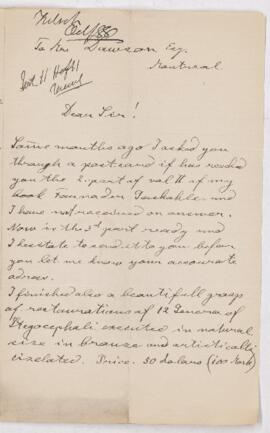 To Mr Dawson Esq.
Montreal
Dear Sir!
Some months ago I asked you
through a postcard if has reached
you the 2. part of vol II of my
book and
I have not received an answer.
Now is the 3d part ready and
I hesitate to send it to you before
you let me know your accourate
adress.
I finished also a beautifull group
of restaurations of 12 Genera of
Stegocephali executed in natural
size in bronze and artistically
cizelated. Price. 30 dolars (100 Mark)